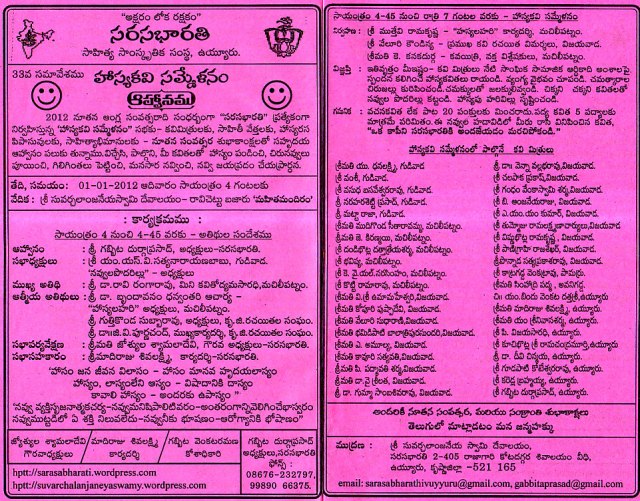 "అక్షరం లోక రక్షకం"
సరసభారతి
సాహిత్య సాంస్కృతిక సంస్థ, ఉయ్యూరు.
33వ సమావేశము
హాస్యకవి సమ్మేళనం
ఆహ్వానము
2012 నూతన ఆంగ్ల సంవత్సరాది సందర్భంగా "సరసభారతి" ప్రత్యేకంగా
నిర్వహిస్తున్న 'హాస్యకవి సమ్మేళనం' సభకు - కవిమిత్రులకు, సాహితీ వేత్తలకు, హాస్యరస
పిపాసువులకు, సాహిత్యాభిమానులకు - నూతన సంవత్సర శుభాకాంక్షలతో సహృదయ
ఆహ్వానం పలుకు తున్నాము.విచ్చేసి, పాల్గొని, మీ కవితలతో హాస్యం పండించి, చిరునవ్వులు
పూయించి, గిలిగింతలు పెట్టించి, మనసార నవ్వించి, నవ్వి జయప్రదం చేయప్రార్థన.
తేది, సమయం: 01-01-2012 ఆదివారం సాయంత్రం 4 గంటలకు
వేదిక : శ్రీ సువర్చలాంజనేయస్వామి దేవాలయం - రావిచెట్టు బజారు 'మహితమందిరం'
: కార్యక్రమము :
సాయంత్రం 4 నుంచి 4-45 వరకు - అతిథుల సందేశము
ఆహ్వానం : శ్రీ గబ్బిట దుర్గాప్రసాద్, అధ్యక్షులు-సరసభారతి.
సభాధ్యక్షులు : శ్రీ యం.ఎస్.వి.సత్యనారాయణబాబు, గుడివాడ.
'నవ్వులపొదరిల్లు" - అధ్యక్షులు
ముఖ్య అతిథి : శ్రీ డా.రావి రంగారావు, మిని కవితోద్యమసారథి,మచిలీపట్నం.
ఆత్మీయ అతిథులు : శ్రీ డా. బృందావనం ధన్వంతరి ఆచార్య -
"హాస్యలహరి" అధ్యక్షులు, మచిలీపట్నం.
శ్రీ గుత్తికొండ సుబ్బారావు, అధ్యక్షులు, కృ.జి.రచయితల సంఘం.
శ్రీ డా॥జి.వి.పూర్ణచంద్, ముఖ్యకార్యదర్శి, కృ.జి.రచయితల సంఘం.
సభాపర్యవేక్షణ : శ్రీమతి జోశ్యుల శ్యామలాదేవి, గౌరవ అధ్యక్షులు-సరసభారతి.
సభాసహకారం : శ్రీమాదిరాజు శివలక్ష్మి, కార్యదర్శి-సరసభారతి.
'హాసం జన జీవన విలాసం - హాసం మానవ హృదయలాస్యం
హాస్యం, లాస్యంలేని ఆస్యం - విషాదానికి దాస్యం
కావాలి హాస్యం - అందరకు ఉపాస్యం "
జ్యోశ్యుల శ్యామలాదేవి
గౌరవాధ్యక్షులు
మాదిరాజు శివలక్ష్మి
కార్యదర్శి
గబ్బిట వెంకటరమణ
కోశాధికారి
గబ్బిట దుర్గాప్రసాద్
అధ్యక్షులు,సరసభారతి
ఫోన్స్ :
08676-232797,
99890 66375.
hptt://sarasabharati.wordpress.com
hptt://suvarchalanjaneyaswamy.wordpress.com
సాయంత్రం 4-45 నుంచి రాత్రి 7 గంటల వరకు - హాస్యకవి సమ్మేళనం
నిర్వహణ : శ్రీ ముత్తేవి రామకృష్ణ - "హాస్యలహరి" కార్యదర్శి, మచిలీపట్నం.
శ్రీ వేలూరి కౌండిన్య - ప్రముఖ కవి రచయిత విమర్శలు, విజయవాడ.
శ్రీమతి జి. కనకదుర్గ - కవయిత్రి, వక్త విశ్లేషకులు, మచిలీపట్నం.
విజ్ఞప్తి : ఇతివృత్తం మీఇష్టం- కవి మిత్రులు నేటి సాంఘిక సామాజిక ఆర్థికాది అంశాలపై
స్పందన కలిగించే హాస్యకవితలు రాయండి. వ్యంగ్య వైభవం చూపండి. చమత్కారాల
గమనిక : వచనకవిత లేక పాట 20 పంక్తులకు మించరాదు.పద్య కవిత 5 పద్యాలకు
మాత్రమే పరిమితం.ఈ నవ్వుల హడావిడిలో మీరు రాసి వినిపించిన కవిత,
"ఒక కాపీని సరసభారతికి అందజేయడం మరచిపోకండి."
హాస్యకవి సమ్మేళనంలో పాల్గొనే కవి మిత్రులు
శ్రీమతి యు. ధనలక్ష్మి, గుడివాడ
శ్రీ వంశీ, గుడివాడ.
శ్రీ వసుధ బసవేశ్వరరావు, గుడివాడ.
శ్రీ నరహరిశెట్టి ప్రసాద్, గుడివాడ.
శ్రీ వట్టా రాజా, గుడివాడ.
శ్రీమతి ముదిగొండ సీతారావమ్మ, మచిలీపట్నం.
శ్రీమతి జె. కిరణ్మయి, మచిలీపట్నం.
శ్రీ దండిభొట్ల దత్తాత్రేయశర్మ, మచిలీపట్నం.
శ్రీ భవిష్య, మచిలీపట్నం.
శ్రీ కె. వై.యల్.నరసింహం, మచిలీపట్నం.
శ్రీ కొట్టి రామారావు, మచిలీపట్నం.
శ్రీమతి వి.శ్రీ ఉమామహేశ్వరి,విజయవాడ.
శ్రీమతి కోపూరి పుష్పాదేవి, విజయవాడ.
శ్రీమతి వేలూరి సుధారాణి,విజయవాడ.
శ్రీమతి ఎ. అమూల్య, విజయవాడ.
శ్రీమతి కావూరి సత్యవతి,విజయవాడ.
శ్రీమతి పి. పద్మావతి శర్మ,విజయవాడ.
శ్రీమతి డా.నై శ్రీలత, విజయవాడ.
శ్రీ డా. గుమ్మా సాంబశివరావు, విజయవాడ.
శ్రీ డా॥ వెన్నా వల్లభరావు,విజయవాడ.
శ్రీ చలపాక ప్రకాష్,విజయవాడ.
శ్రీ గంధం వేంకాస్వామి శర్మ,విజయవాడ.
శ్రీ బి. ఆంజనేయరాజు, విజయవాడ.
శ్రీ ఎ.యం.యం కుమార్, విజయవాడ.
శ్రీ తుమ్మోజు రామలక్ష్మణాచార్యులు,విజయవాడ
శ్రీ విష్ణుభొట్ల రామకృష్ణ, విజయవాడ.
శ్రీ పాణిగ్రాహి రాజశేఖర్, విజయవాడ.
శ్రీ పొన్నాడ సత్యప్రకాశరావు, విజయవాడ.
శ్రీ కాట్రగడ్డ వెంకట్రావు, పామర్రు.
శ్రీమతి సింహాద్రి పద్మ, అవనిగడ్డ.
చి॥ యం.బిందు వెంకట దత్తశ్రీ,ఉయ్యూరు
శ్రీమతి మాదిరాజు శివలక్ష్మి, ఉయ్యూరు
శ్రీమతి యం శ్రీనివాసశర్మ, ఉయ్యూరు.
శ్రీ పి. విజయసారధి, ఉయ్యూరు.
శ్రీ కూచిభొట్ల శ్రీ రామచంద్రమూర్తి,ఉయ్యూరు.
శ్రీ డా. దీవి చిన్మయ, ఉయ్యూరు.
శ్రీ గూడపాటి కోటేశ్వరరావు, ఉయ్యూరు.
శ్రీ కరెడ్ల బ్రహ్మయ్య, ఉయ్యూరు.
అందరికీ నూతన సంవత్సర, మరియు సంక్రాంతి శుభాకాంక్షలు
తెలుగులో మాట్లాడటం మన జన్మహక్కు
ముద్రణ : శ్రీ సువర్చలాంజనేయ స్వామి దేవాలయం,
సరసభారతి 2-405 రాజాగారి కోటదగ్గర శివాలయం వీధి,
ఉయ్యూరు, కృష్ణాజిల్లా -521 165
email: sarasabharathivuyyuru@gmail.com, gabbitaprasad@gmail.com